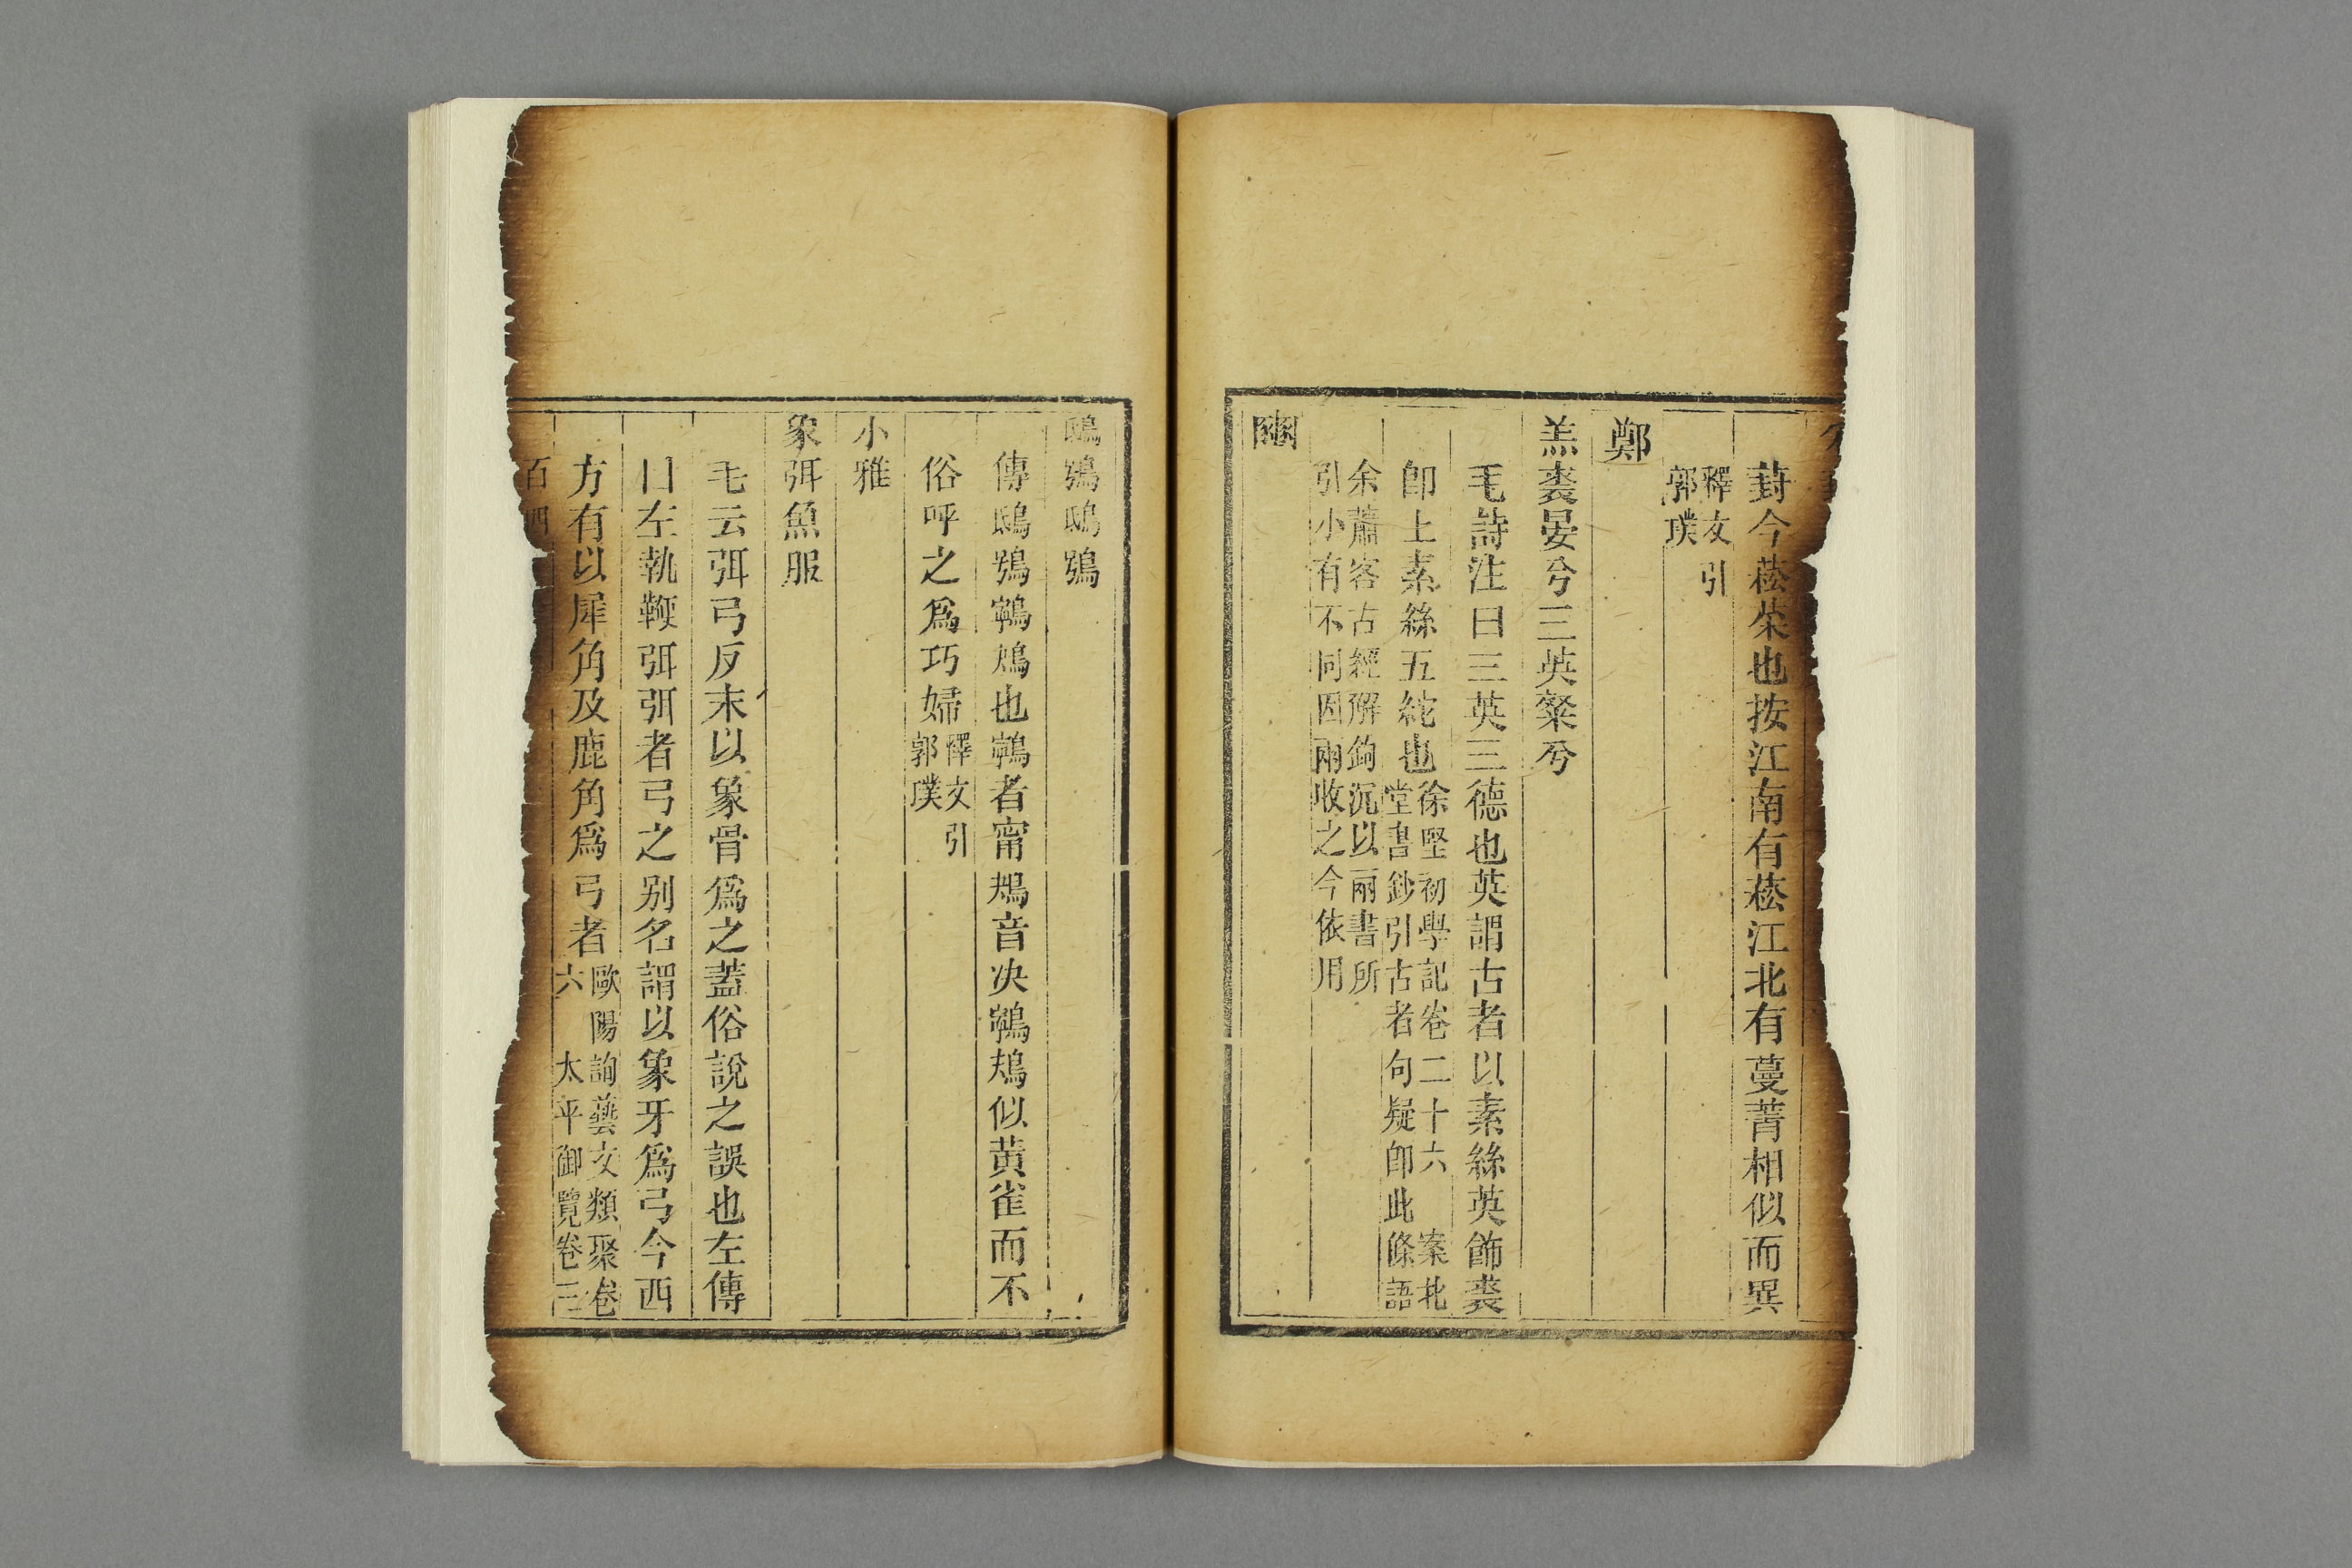 葑今菘柴也按江南有菘江北有蔓菁相似而異
釋文引
郭璞
鄭
羔裘晏兮三英粲兮
毛詩注曰三英三德也英謂古者以素絲英飾裘
卽上素絲五紽也
徐堅初學記卷二十六　案北
堂書鈔引古者句疑卽此條語
余蕭客古經解鉤沉以兩書所
引小有不同因兩收之今依用
豳
鴟鴞鴟鴞
傳鴟鴞鸋鴂也鸋者甯鴂音決鸋鴂似黃雀而不
俗呼之爲巧婦
釋文引
郭璞
小雅
象弭魚服
毛云弭弓反末以象骨爲之蓋俗說之誤也左傳
曰左執鞭弭弭者弓之别名謂以象牙爲弓今西
方有以犀角及鹿角爲弓者
歐陽詢藝文類聚卷
六　太平御覽卷三
百四